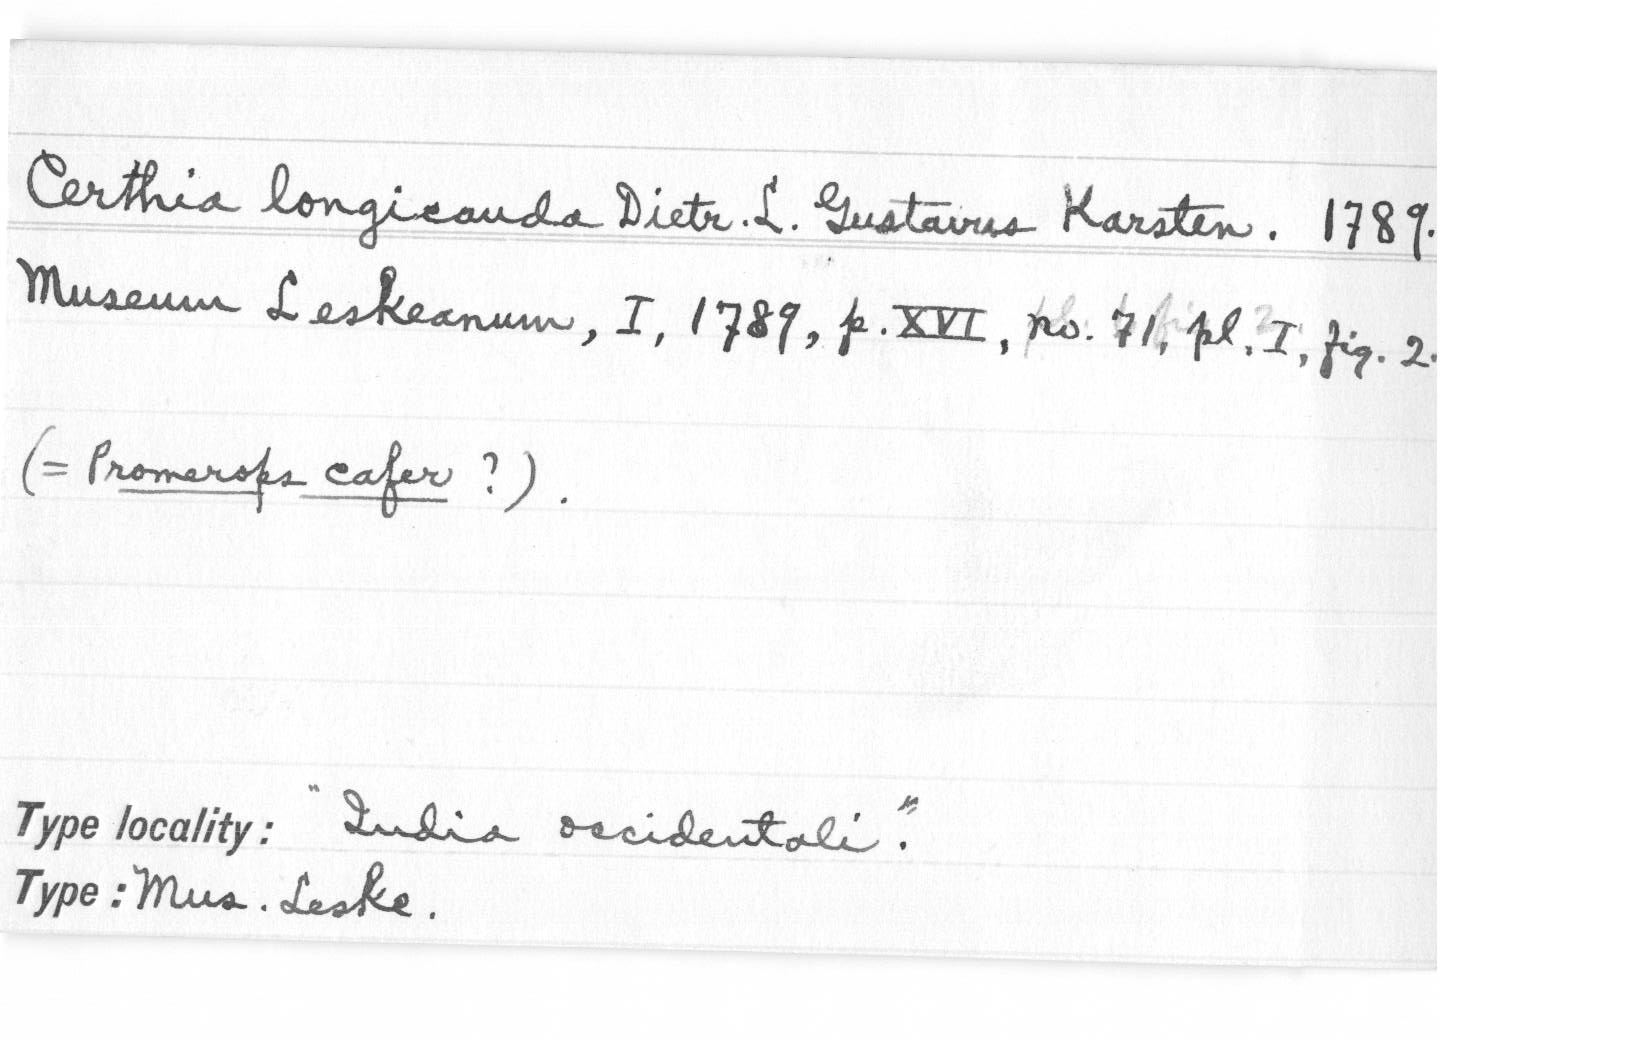 Certhia longicauda Dietr. L. Gustavus Karsten. 1789.
Museum Leskeanum, I, 1789, p. XVI, no. 71, pl. I, fig. 2.
(= Promerops cafer ?).
Type locality: "India occidentali".
Type: Mus. Leske.